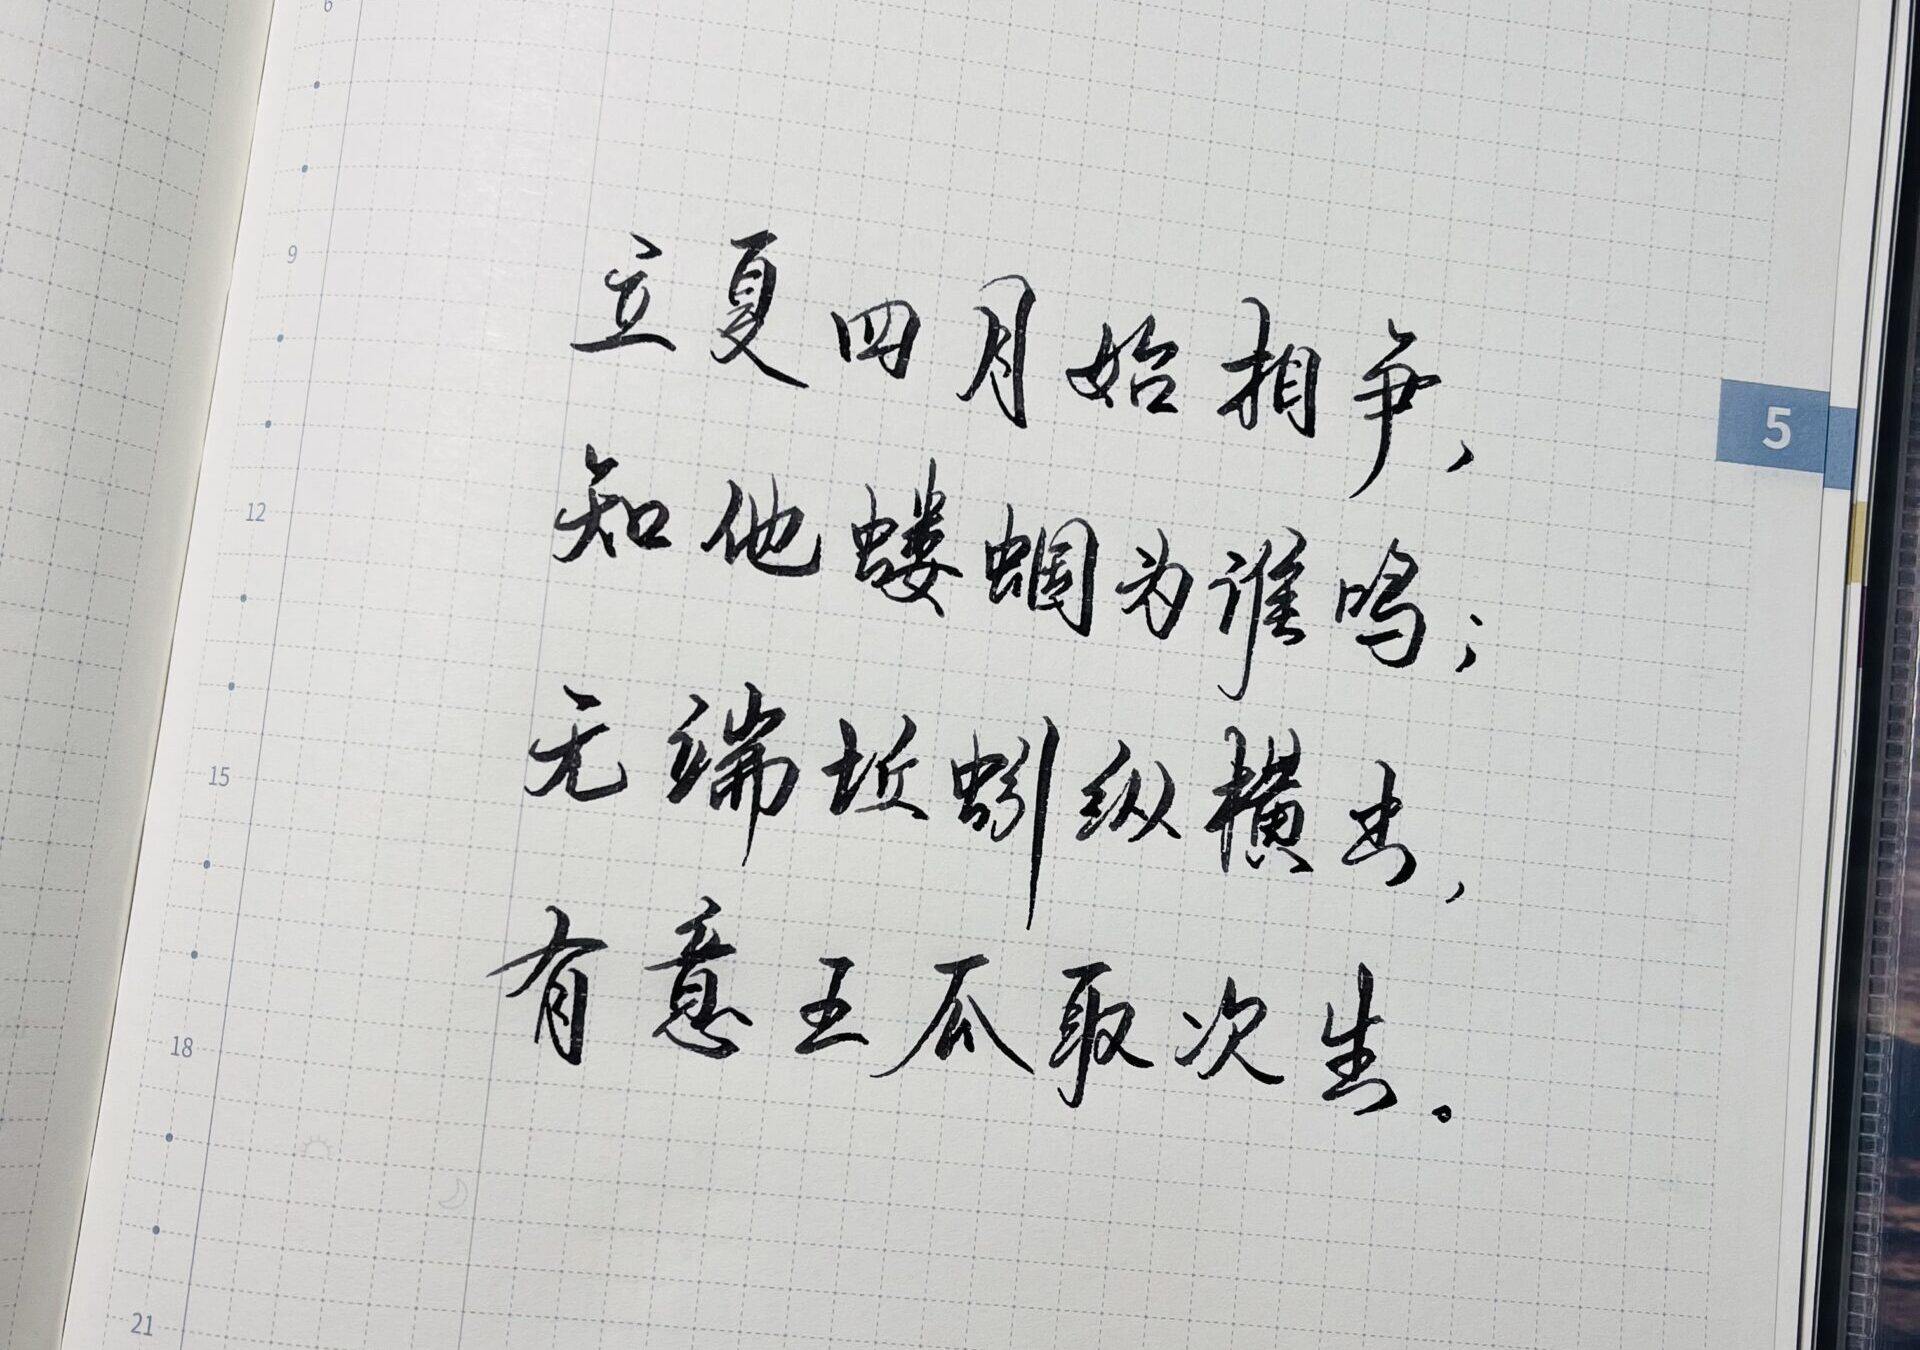 6
9
立夏四月始相争，
5
12
知他蝼蝈为谁鸣；
15
无端坵蚓纵横出，
18
有意王瓜取次生。
21